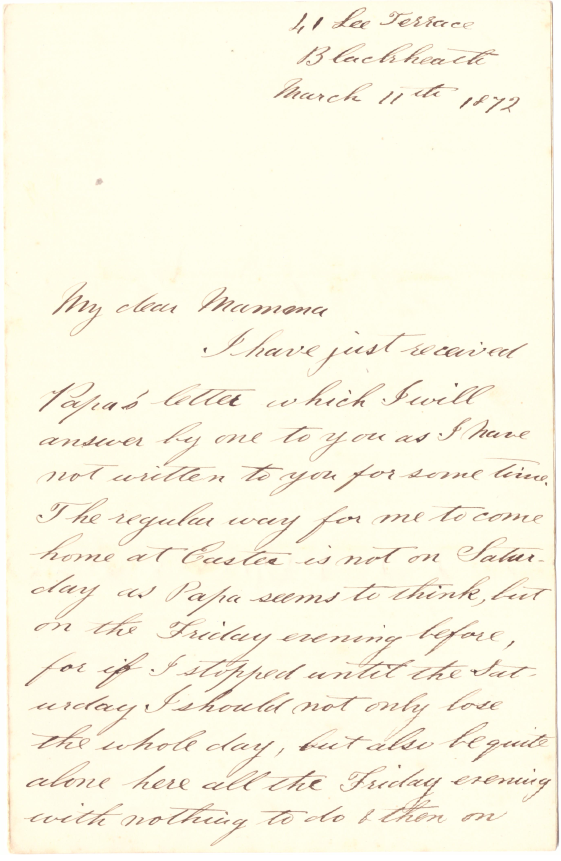 41 Lee Terrace
Blackheath
March 11th 1872
My dear Mamma
I have just received
Papa's letter which I will
answer by one to you as I have
not written to you for some time.
The regular way for me to come
home at Easter is not on Satur-
day as Papa seems to think, but
on the Friday evening before,
for if I stopped until the Sat-
urday I should not only lose
the whole day, but also be quite
alone here all the Friday evening
with nothing to do & then on